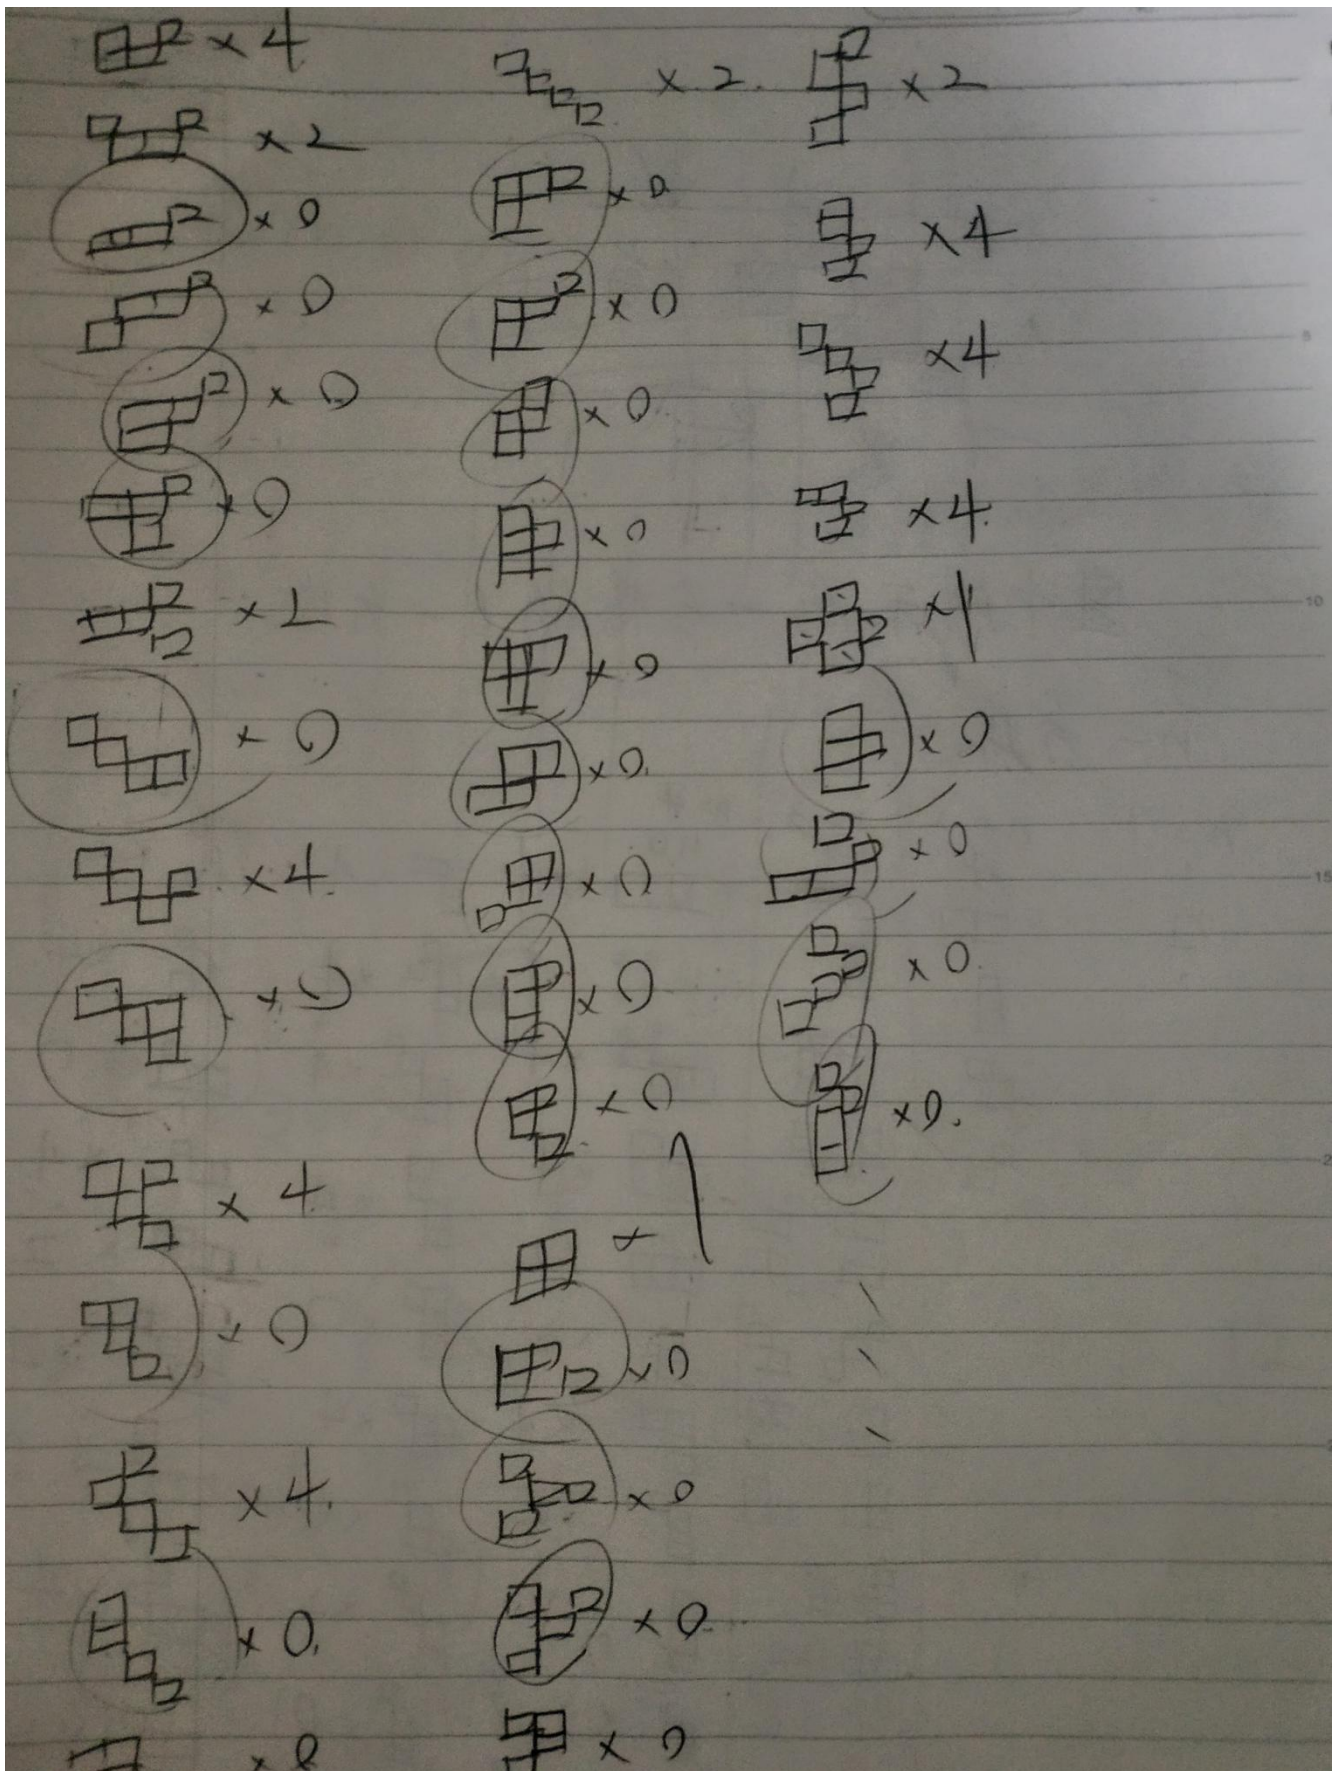 × 4
× 2
× 0
× 0
× 0
× 0
× 2
× 0
× 4.
× 0
× 4
× 0
× 4.
× 0.
× 8
× 2.
× 0
× 0
× 0.
× 0
× 0
× 0.
× 0
× 0
× 0
× 1
× 0
× 0
× 0
× 0
× 2
× 4
× 4
× 4.
× 1
× 0
× 0
× 0
× 0.
5
10
15
2